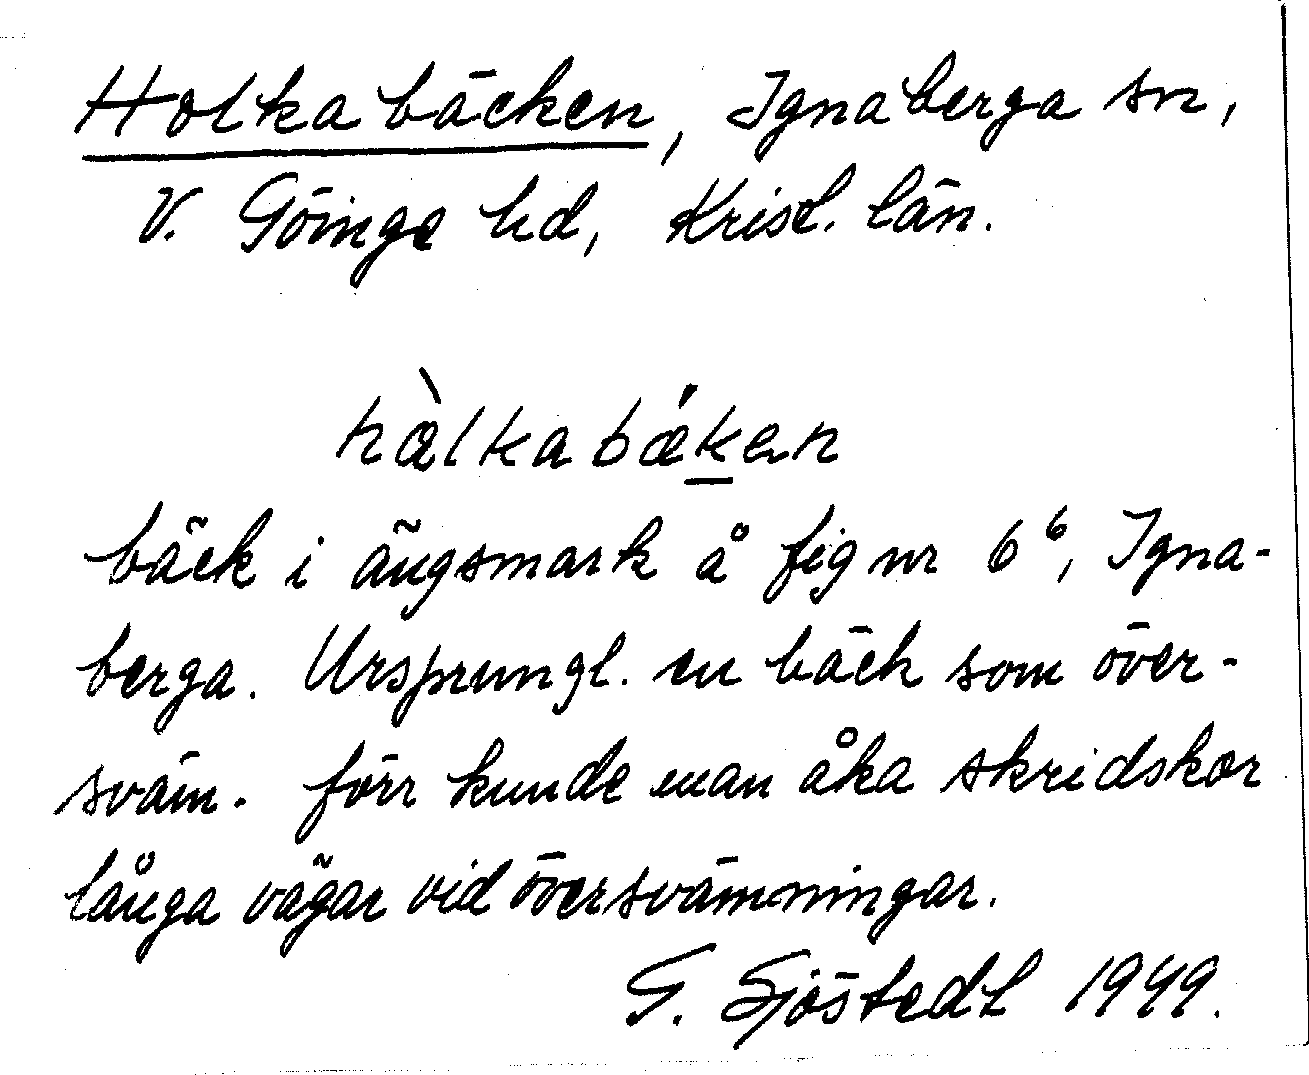 Holkabäcken, Ignaberga sn,
V. Göinge hd, Krist. län.
hàlkabǽkan
bäck i ängsmark å fig nr 6⁶, Igna-
berga. Ursprungl. en bäck som över-
sväm. förr kunde man åka skridskor
långa vägar vid översvämningar.
G. Sjöstedt 1949.